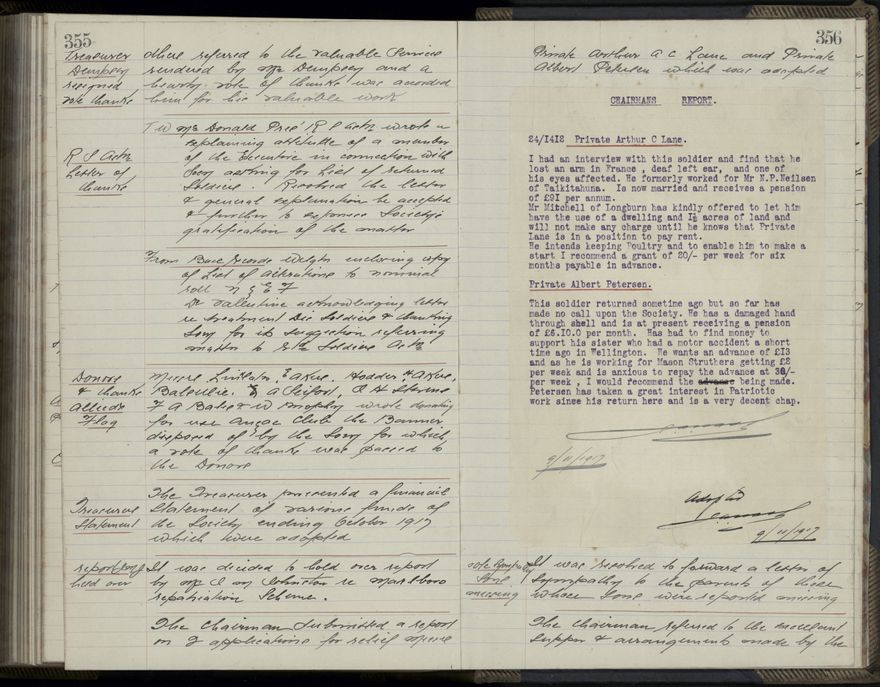 355
Treasurer
Dempsey
resigned
vote thanks
others referred to the valuable services
rendered by Mr Dempsey and a
hearty vote of thanks was accorded
him for his valuable work
R S Assn
letter of
thanks
McDonald Pres R S Assn wrote
explaining attitude of a member
of the Executive in connection with
Socy asking for list of returned
Soldiers. Resolved the letter
& general explanation be accepted
& further to express Society's
gratification of the matter
From Base Records Wgtn enclosing copy
of list of alterations to nominal
roll N Z E F
Dr Valintine acknowledging letter
re treatment Dis Soldiers & thanking
Socy for its suggestion referring
matter to Soldiers Assn
Donors
& thanks
Allies
Flag
Messrs Hodder
wrote donating
for use ANZAC Club the Banner
disposed of by the Socy for which
a vote of thanks was passed to
the Donors
Treasurers
Statement
The Treasurer presented a financial
Statement of various funds of
the Society ending October 1917
which were adopted
report
held over
It was decided to hold over report
by Mr Johnston re Marlboro
repatriation Scheme.
The Chairman submitted a report
on 2 applications for relief
356
Private Arthur A C Lane and Private
Albert Petersen which was adopted
CHAIRMANS REPORT.
24/1412 Private Arthur C Lane.
I had an interview with this soldier and find that he
lost an arm in France , deaf left ear, and one of
his eyes affected. He formerly worked for Mr N.P.Neilsen
of Taikitahuna. Is now married and receives a pension
of £91 per annum.
Mr Mitchell of Longburn has kindly offered to let him
have the use of a dwelling and 1½ acres of land and
will not make any charge until he knows that Private
Lane is in a position to pay rent.
He intends keeping Poultry and to enable him to make a
start I recommend a grant of 20/- per week for six
months payable in advance.
Private Albert Petersen.
This soldier returned sometime ago but so far has
made no call upon the Society. He has a damaged hand
through shell and is at present receiving a pension
of £6.10.0 per month. Has had to find money to
support his sister who had a motor accident a short
time ago in Wellington. He wants an advance of £13
and as he is working for Mason Struthers getting £2
per week and is anxious to repay the advance at 30/-
per week , I would recommend the advance being made.
Petersen has taken a great interest in Patriotic
work since his return here and is a very decent chap.
9/11/1917
Adopted
9/11/1917
vote sympathy
Sons
missing
It was resolved to forward a letter of
sympathy to the parents of those
whose sons were reported missing
The Chairman referred to the excellent
supper & arrangements made by the